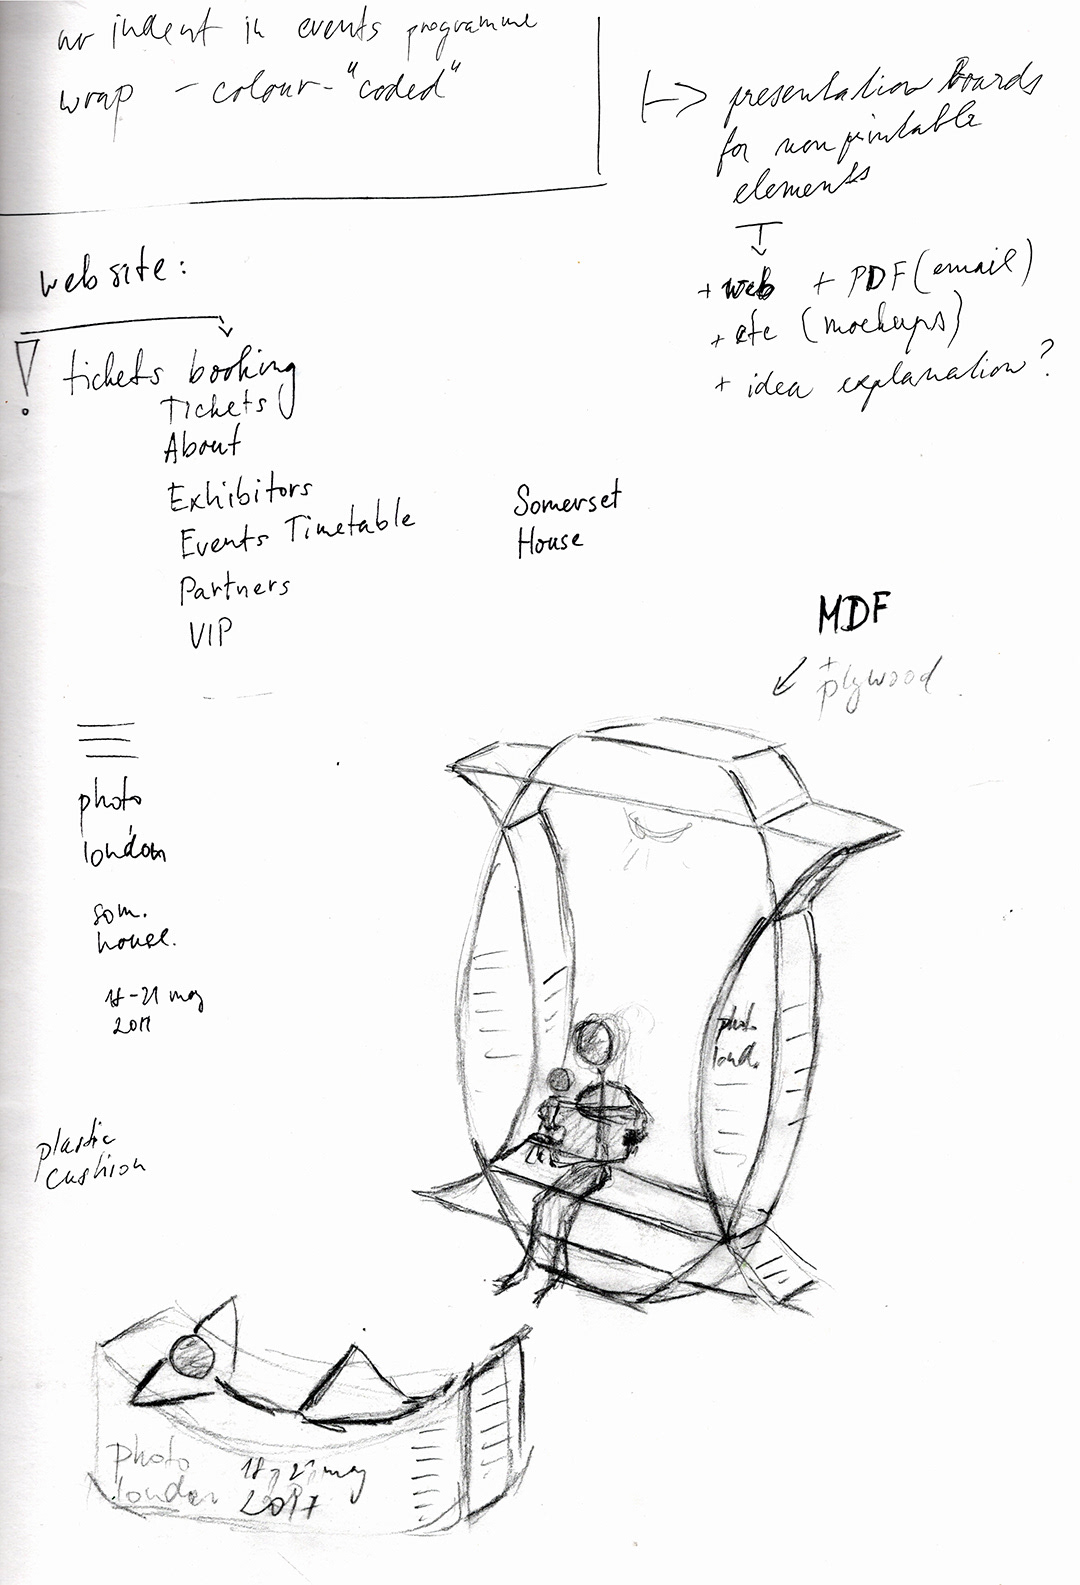 no indent in events programme
wrap - colour-"coded"
presentation Boards
for nonprintable
elements
+ web + PDF (email)
+ etc (mockups)
+ idea explanation?
website:
! tickets booking
Tickets
About
Exhibitors
Events Timetable
Partners
VIP
Somerset
House
MDF
+
plywood
photo
london
som.
house.
18-21 may
2017
phot.
lond.
plastic
cushion
photo
london
18, 21 may
2017